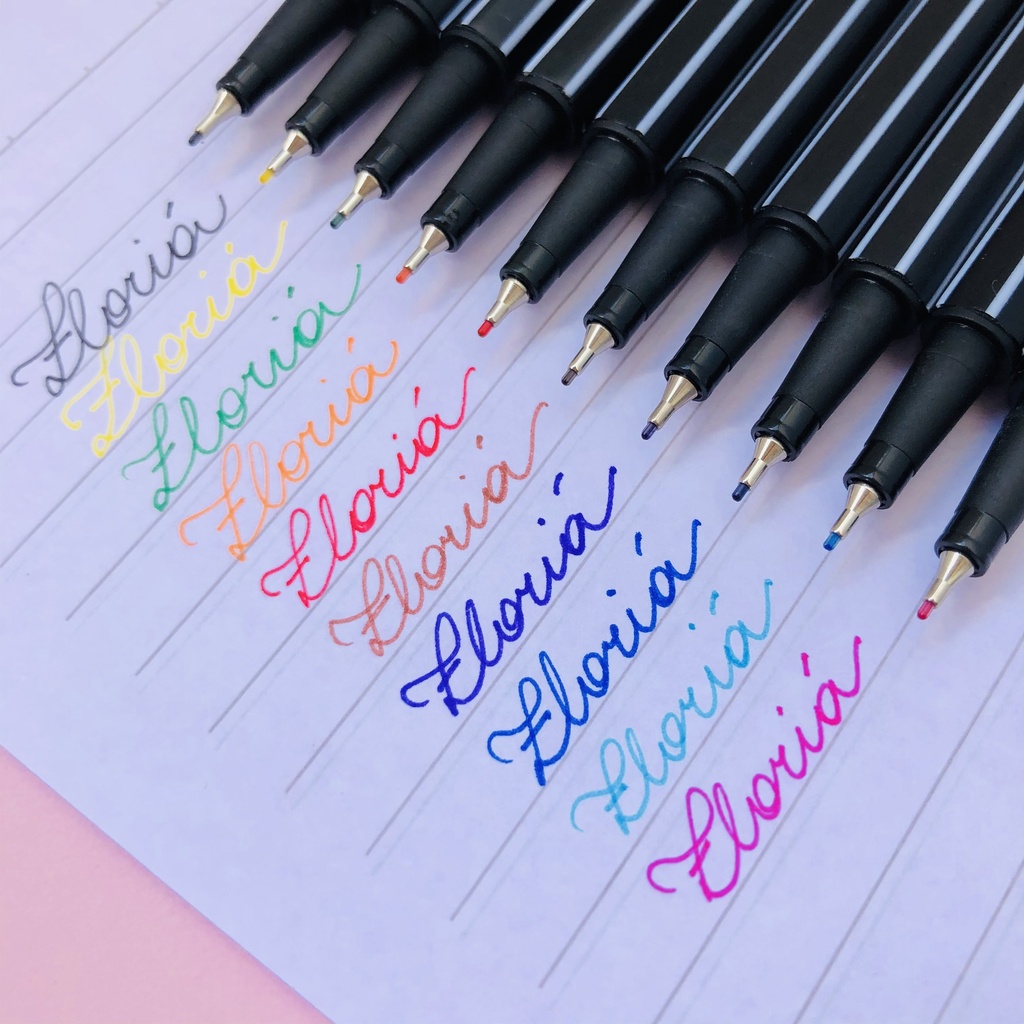 Floriá
Floriá
Floriá
Floriá
Floriá
Floriá
Floriá
Floriá
Floriá
Floriá